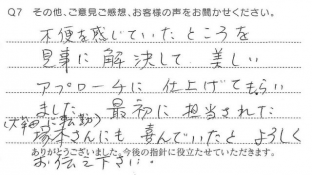 Q7 その他、ご意見ご感想、お客様の声をお聞かせください。
不便を感じていたところを
見事に解決して 美しい
アプローチに 仕上げてもらい
ました。最初に担当された
(大阪に転勤)
塚本さんにも喜んでいたと よろしく
ありがとうございました。今後の指針に役立たせていただきます。
お伝え下さい。